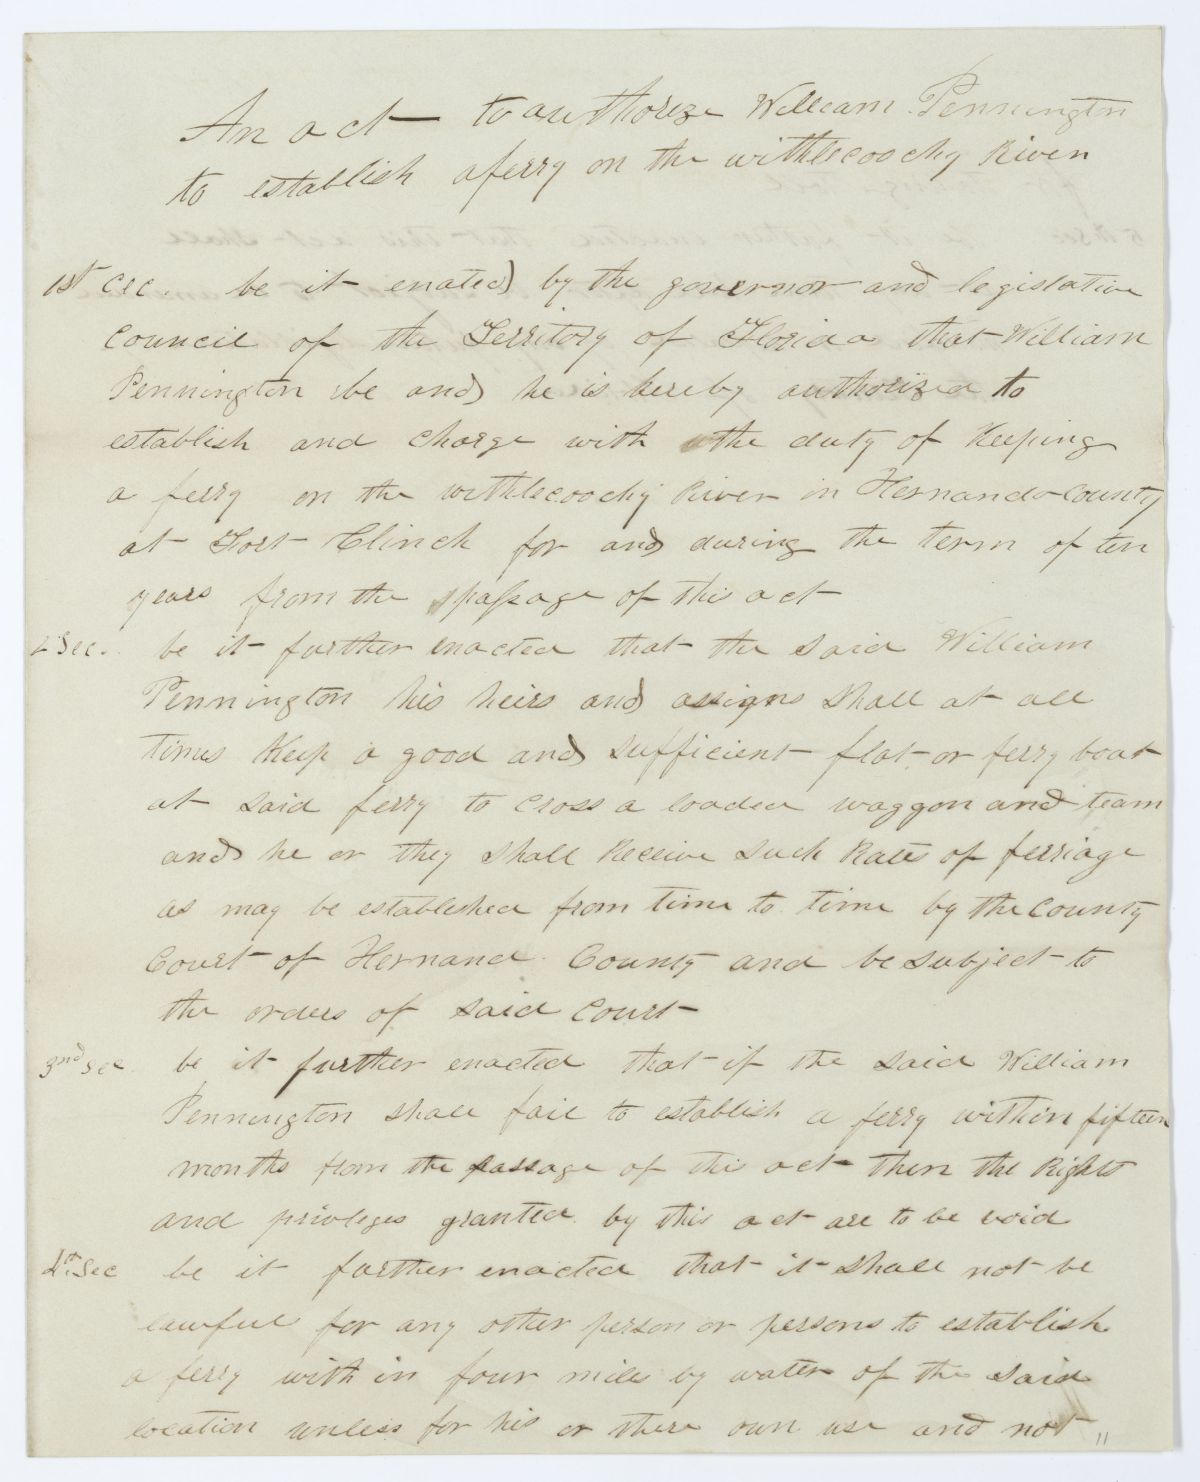 An act to authorize William Pennington
to establish a ferry on the withlecoochy River
1st cec. be it enated by the governor and legislative
Council of the Territory of Florida that William
Pennington be and he is hereby authorized to
establish and charge with the duty of Keeping
a ferry on the withlecoochy River in Hernando County
at Fort Clinch for and during the term of ten
years from the passage of this act
2 Sec. be it further enacted that the said William
Pennington his heirs and assigns shall at all
times Keep a good and sufficient flat or ferry boat
at said ferry to cross a loaded waggon and team
and he or they shall Receive such Rates of ferriage
as may be established from time to time by the County
Court of Hernand County and be subject to
the orders of said Court
3nd sec be it further enacted that if the said William
Pennington shall fail to establish a ferry within fifteen
months from the passage of this act then the Rights
and privleges granted by this act are to be void
4th Sec be it further enacted that it shall not be
lawful for any other person or persons to establish
a ferry with in four miles by water of the said
location unless for his or there own use and not "